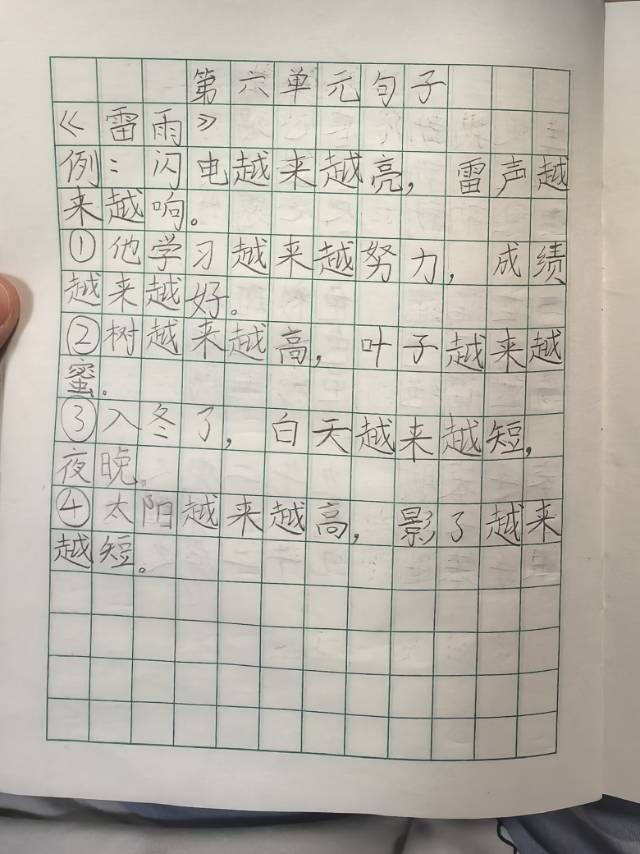 第六单元句子
《雷雨》
例：闪电越来越亮，雷声越
来越响。
①他学习越来越努力，成绩
越来越好。
②树越来越高，叶子越来越
蜜。
③入冬了，白天越来越短，
夜晚。
④太阳越来越高，影了越来
越短。